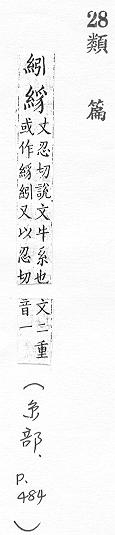 28 類篇
紖絼
丈忍切說文牛系也
或作絼紖又以忍切
文二重
音一
(糸部, P. 484)